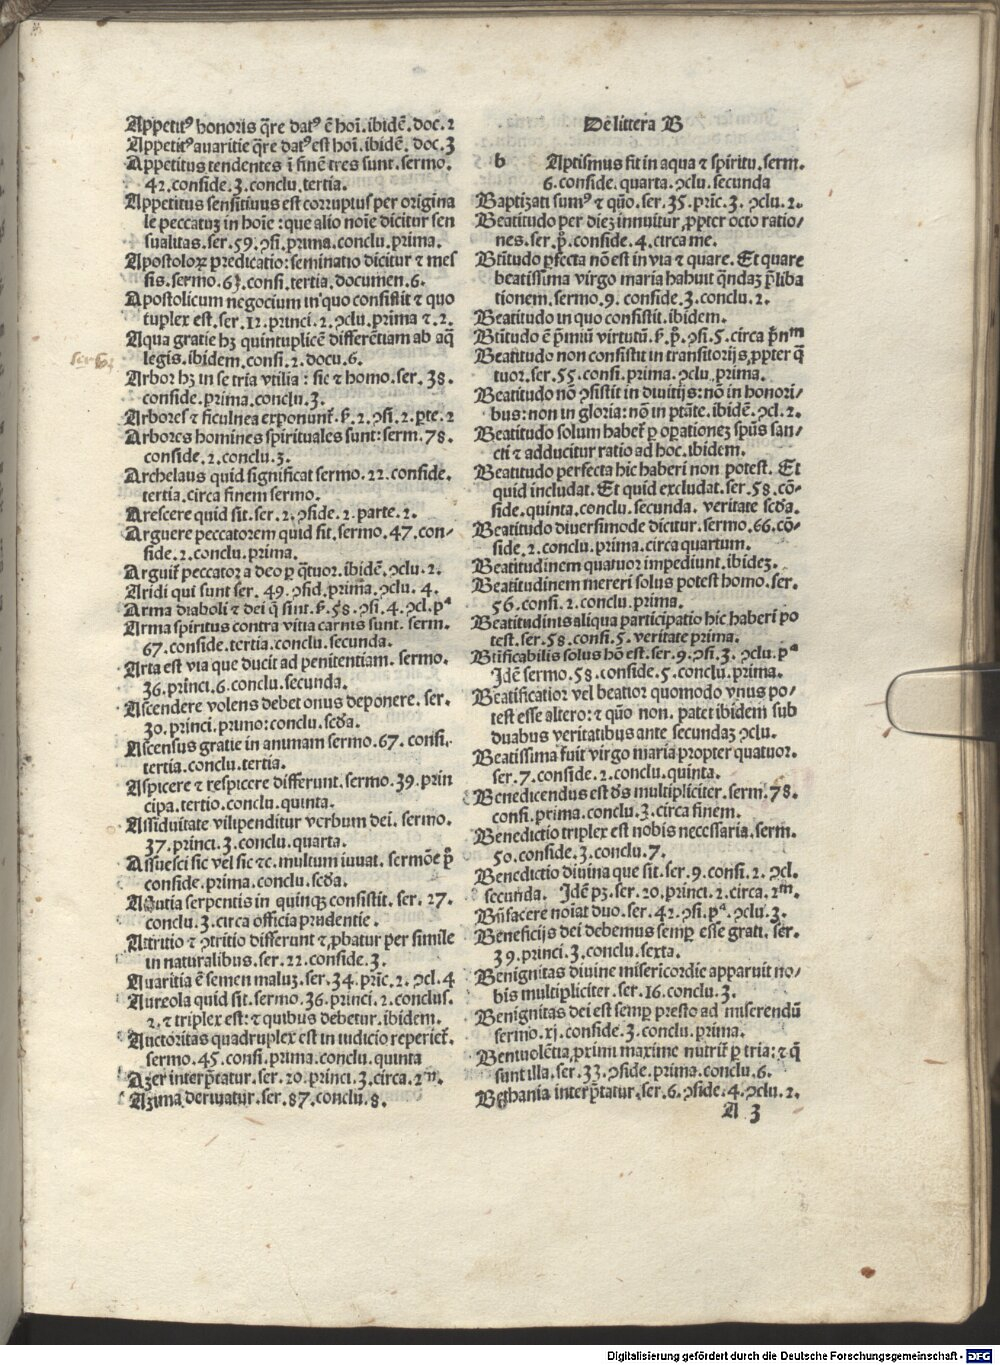 Appetitꝰ honoris q̄re datꝰ ē hoī.ibidē.doc.2
Appetitꝰ auaritie q̄re datꝰ est hoī.ibidē.doc.3
Appetitus tendentes ī finē tres sunt.sermo.
42.conside.3.conclu.tertia.
Appetitus sensitiuus est corruptus per origina
le peccatuꝫ in hoīe:que alio noīe dicitur sen
sualitas.ser.59.ꝯsi.prima.conclu.prima.
Apostoloꝝ predicatio:seminatio dicitur ⁊ mes
sis.sermo.63.consi.tertia.documen.6.
Apostolicum negocium in quo consistit ⁊ quo
tuplex est.ser.12.princi.2.ꝯclu.prima ⁊.2.
Aqua gratie hꝫ quintuplicē differētiam ab aq̄
legis.ibidem.consi.2.docu.6.
Arbor hꝫ in se tria vtilia : sic ⁊ homo.ser.38.
conside.prima.conclu.3.
Arbores ⁊ ficulnea exponunt̄.ẜ.2.ꝯsi.2.pte.2
Arbores homines spirituales sunt:serm.78.
conside.2.conclu.3.
Archelaus quid significat sermo.22.conside.
tertia.circa finem sermo.
Arescere quid sit.ser.2.ꝯside.2.parte.2.
Arguere peccatorem quid sit.sermo.47.con-
side.2.conclu.prima.
Arguit̄ peccator a deo ꝑ q̄tuor.ibidē.ꝯclu.2.
Aridi qui sunt ser.49.ꝯsid.prima.ꝯclu.4.
Arma diaboli ⁊ dei q̄ sint.ẜ.58.ꝯsi.4.ꝯcl.pᵃ
Arma spiritus contra vitia carnis sunt.serm.
67.conside.tertia.conclu.secunda.
Arta est via que ducit ad penitentiam.sermo.
36.princi.6.conclu.secunda.
Ascendere volens debet onus deponere.ser.
30.princi.primo:conclu.scd̄a.
Ascensus gratie in animam sermo.67.consi.
tertia.conclu.tertia.
Aspicere ⁊ respicere differunt.sermo.39.prin
cipa.tertio.conclu.quinta.
Assiduitate vilipenditur verbum dei.sermo.
37.princi.3.conclu.quarta.
Assuesci sic vel sic ⁊c.multum iuuat.sermōe p̄
conside.prima.conclu.scd̄a.
Astutia serpentis in quinqꝫ consistit.ser.27.
conclu.3.circa officia prudentie.
Attritio ⁊ ꝯtritio differunt ⁊ ꝓbatur per simile
in naturalibus.ser.22.conside.3.
Auaritia ē semen maluꝫ.ser.34.prīc.2.ꝯcl.4
Aureola quid sit.sermo.36.princi.2.conclus.
2.⁊ triplex est:⁊ quibus debetur.ibidem.
Auctoritas quadruplex est in iudicio reperiet̄.
sermo.45.consi.prima.conclu.quinta
Azer interp̄tatur.ser.20.princi.3.circa.2ᵐ.
Azima deriuatur.ser.87.conclu.8.
ser 61
De littera B
b Aptismus fit in aqua ⁊ spiritu.serm.
6.conside.quarta.ꝯclu.secunda
Baptizati sumꝰ ⁊ quō.ser.35.prīc.3.ꝯclu.2.
Beatitudo per dieꝫ innuitur ꝓpter octo ratio/
nes.ser.p̄.conside.4.circa me.
Btītudo ꝑfecta nō est in via ⁊ quare.Et quare
beatissima virgo maria habuit q̄ndaꝫ p̄liba
tionem.sermo.9.conside.3.conclu.2.
Beatitudo in quo consistit.ibidem.
Btītudo ē p̄miū virtutū.ẜ.p̄.ꝯsi.5.circa p̄nᵐ
Beatitudo non consistit in transitorijs ꝓpter q̄
tuor.ser.55.consi.prima.ꝯclu.prima.
Beatitudo nō ꝯsistit in diuitijs:nō in honori/
bus:non in gloria:nō in ptāte.ibidē.ꝯcl.2.
Beatitudo solum habet̄ ꝑ oꝑationeꝫ spūs san-
cti ⁊ adducitur ratio ad hoc.ibidem.
Beatitudo perfecta hic haberi non potest. Et
quid includat.Et quid excludat.ser.58.cō-
side.quinta.conclu.secunda. veritate scd̄a.
Beatitudo diuersimode dicitur.sermo.66.cō-
side.2.conclu.prima.circa quartum.
Beatitudinem quatuor impediunt.ibideꝫ.
Beatitudinem mereri solus potest homo.ser.
56.consi.2.conclu.prima.
Beatitudinis aliqua participatio hic haberi po
test.ser.58.consi.5.veritate prima.
Btīficabilis solus hō est.ser.9.ꝯsi.3.ꝯclu.pᵃ
Idē sermo.58.conside.5.conclu.prima.
Beatificatior vel beatior quomodo vnus po/
test esse altero:⁊ quō non.patet ibidem sub
duabus veritatibus ante secundaꝫ ꝯclu.
Beatissima fuit virgo maria propter quatuor.
ser.7.conside.2.conclu.quinta.
Benedicendus est dēs multipliciter.serm.78.
consi.prima.conclu.3.circa finem.
Benedictio triplex est nobis necessaria.serm.
50.conside.3.conclu.7.
Benedictio diuina que sit.ser.9.consi.2.ꝯcl.
secunda. Idē pꝫ.ser.20.princi.2.circa.2ᵐ.
Bn̄facere noīat duo.ser.42.ꝯsi.pᵃ.ꝯclu.3.
Beneficijs dei debemus semꝑ esse grati.ser.
39.princi.3.conclu.sexta.
Benignitas diuine misericordie apparuit no/
bis multipliciter.ser.16.conclu.3.
Benignitas dei est semꝑ presto ad miserendū
sermo.xj.conside.3.conclu.prima.
Beniuolētia ꝓximi maxime nutrit̄ ꝑ tria:⁊ q̄
sunt illa.ser.33.ꝯside.prima.conclu.6.
Bethania interp̄tatur.ser.6.ꝯside.4.ꝯclu.2.
A 3
Digitalisierung gefördert durch die Deutsche Forschungsgemeinschaft - DFG